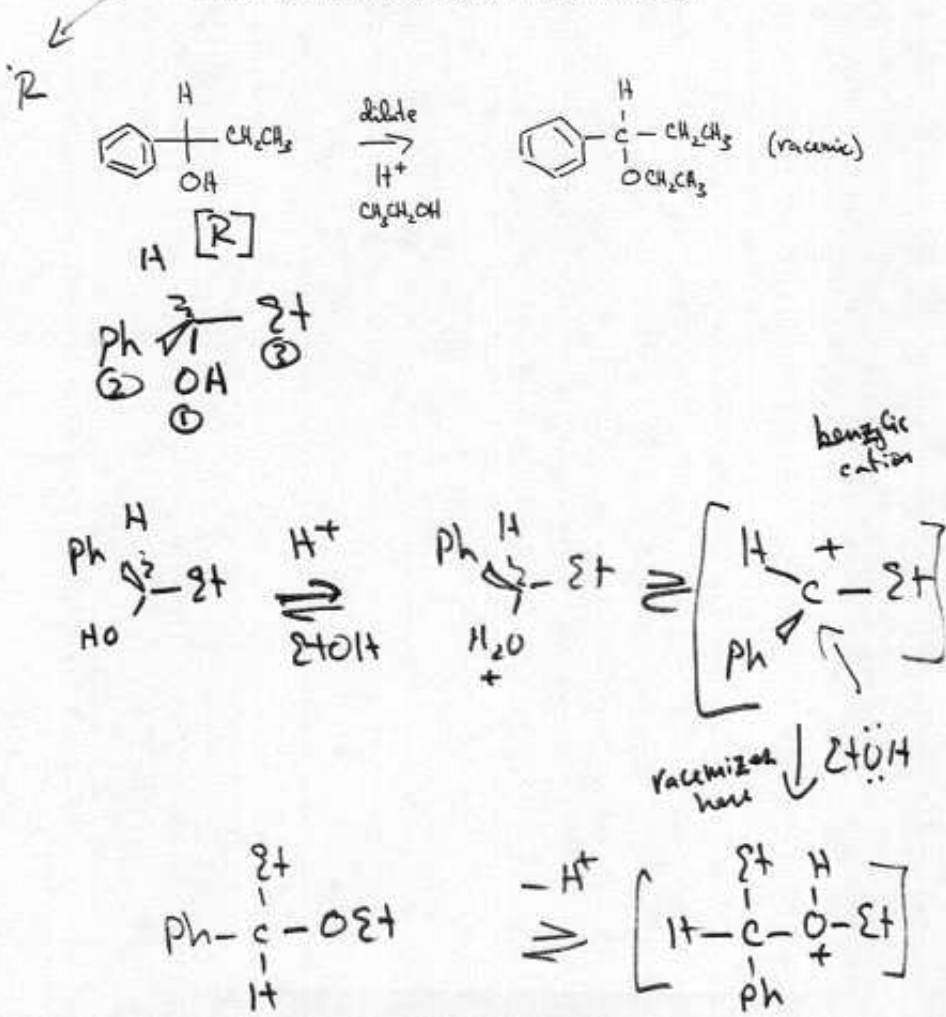 R
H
CH2CH3
OH
dilute
H+
CH3CH2OH
H
C — CH2CH3 (racemic)
OCH2CH3
H [R]
Ph Et
② OH ③
①
benzylic
cation
H
Ph Et
HO
H+
EtOH
H
Ph Et
H2O
+
H + C — Et
Ph
racemizes
here
EtÖH
Et
Ph — C — OEt
H
- H+
Et H
H — C — O — Et
+
Ph